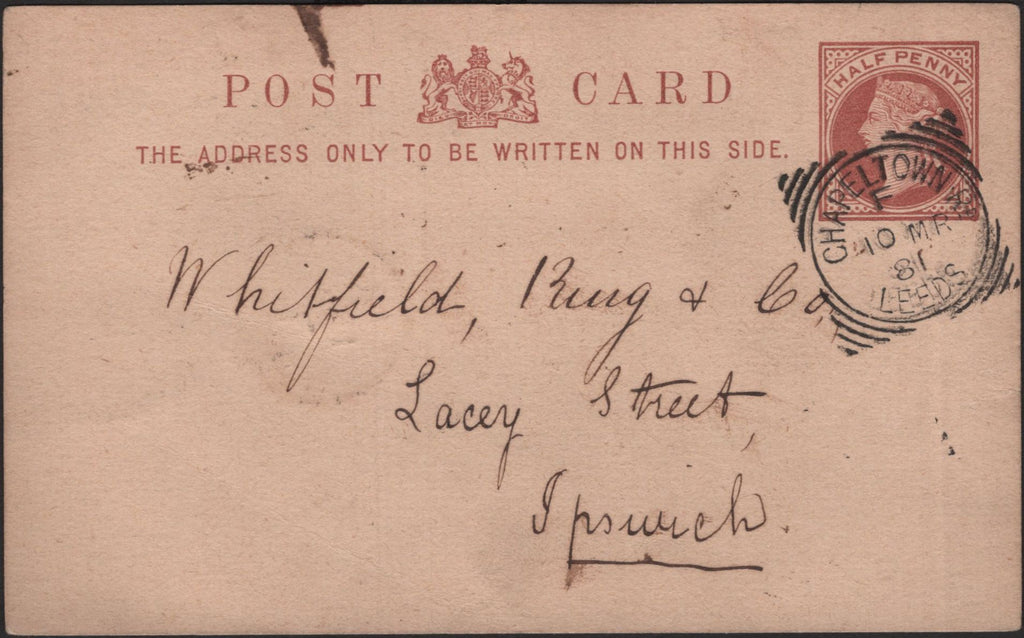 POST CARD
THE ADDRESS ONLY TO BE WRITTEN ON THIS SIDE.
HALF PENNY
CHAPELTOWN RD
F
10 MR
81
LEEDS
Whitfield, King & Co,
Lacey Street,
Ipswich.